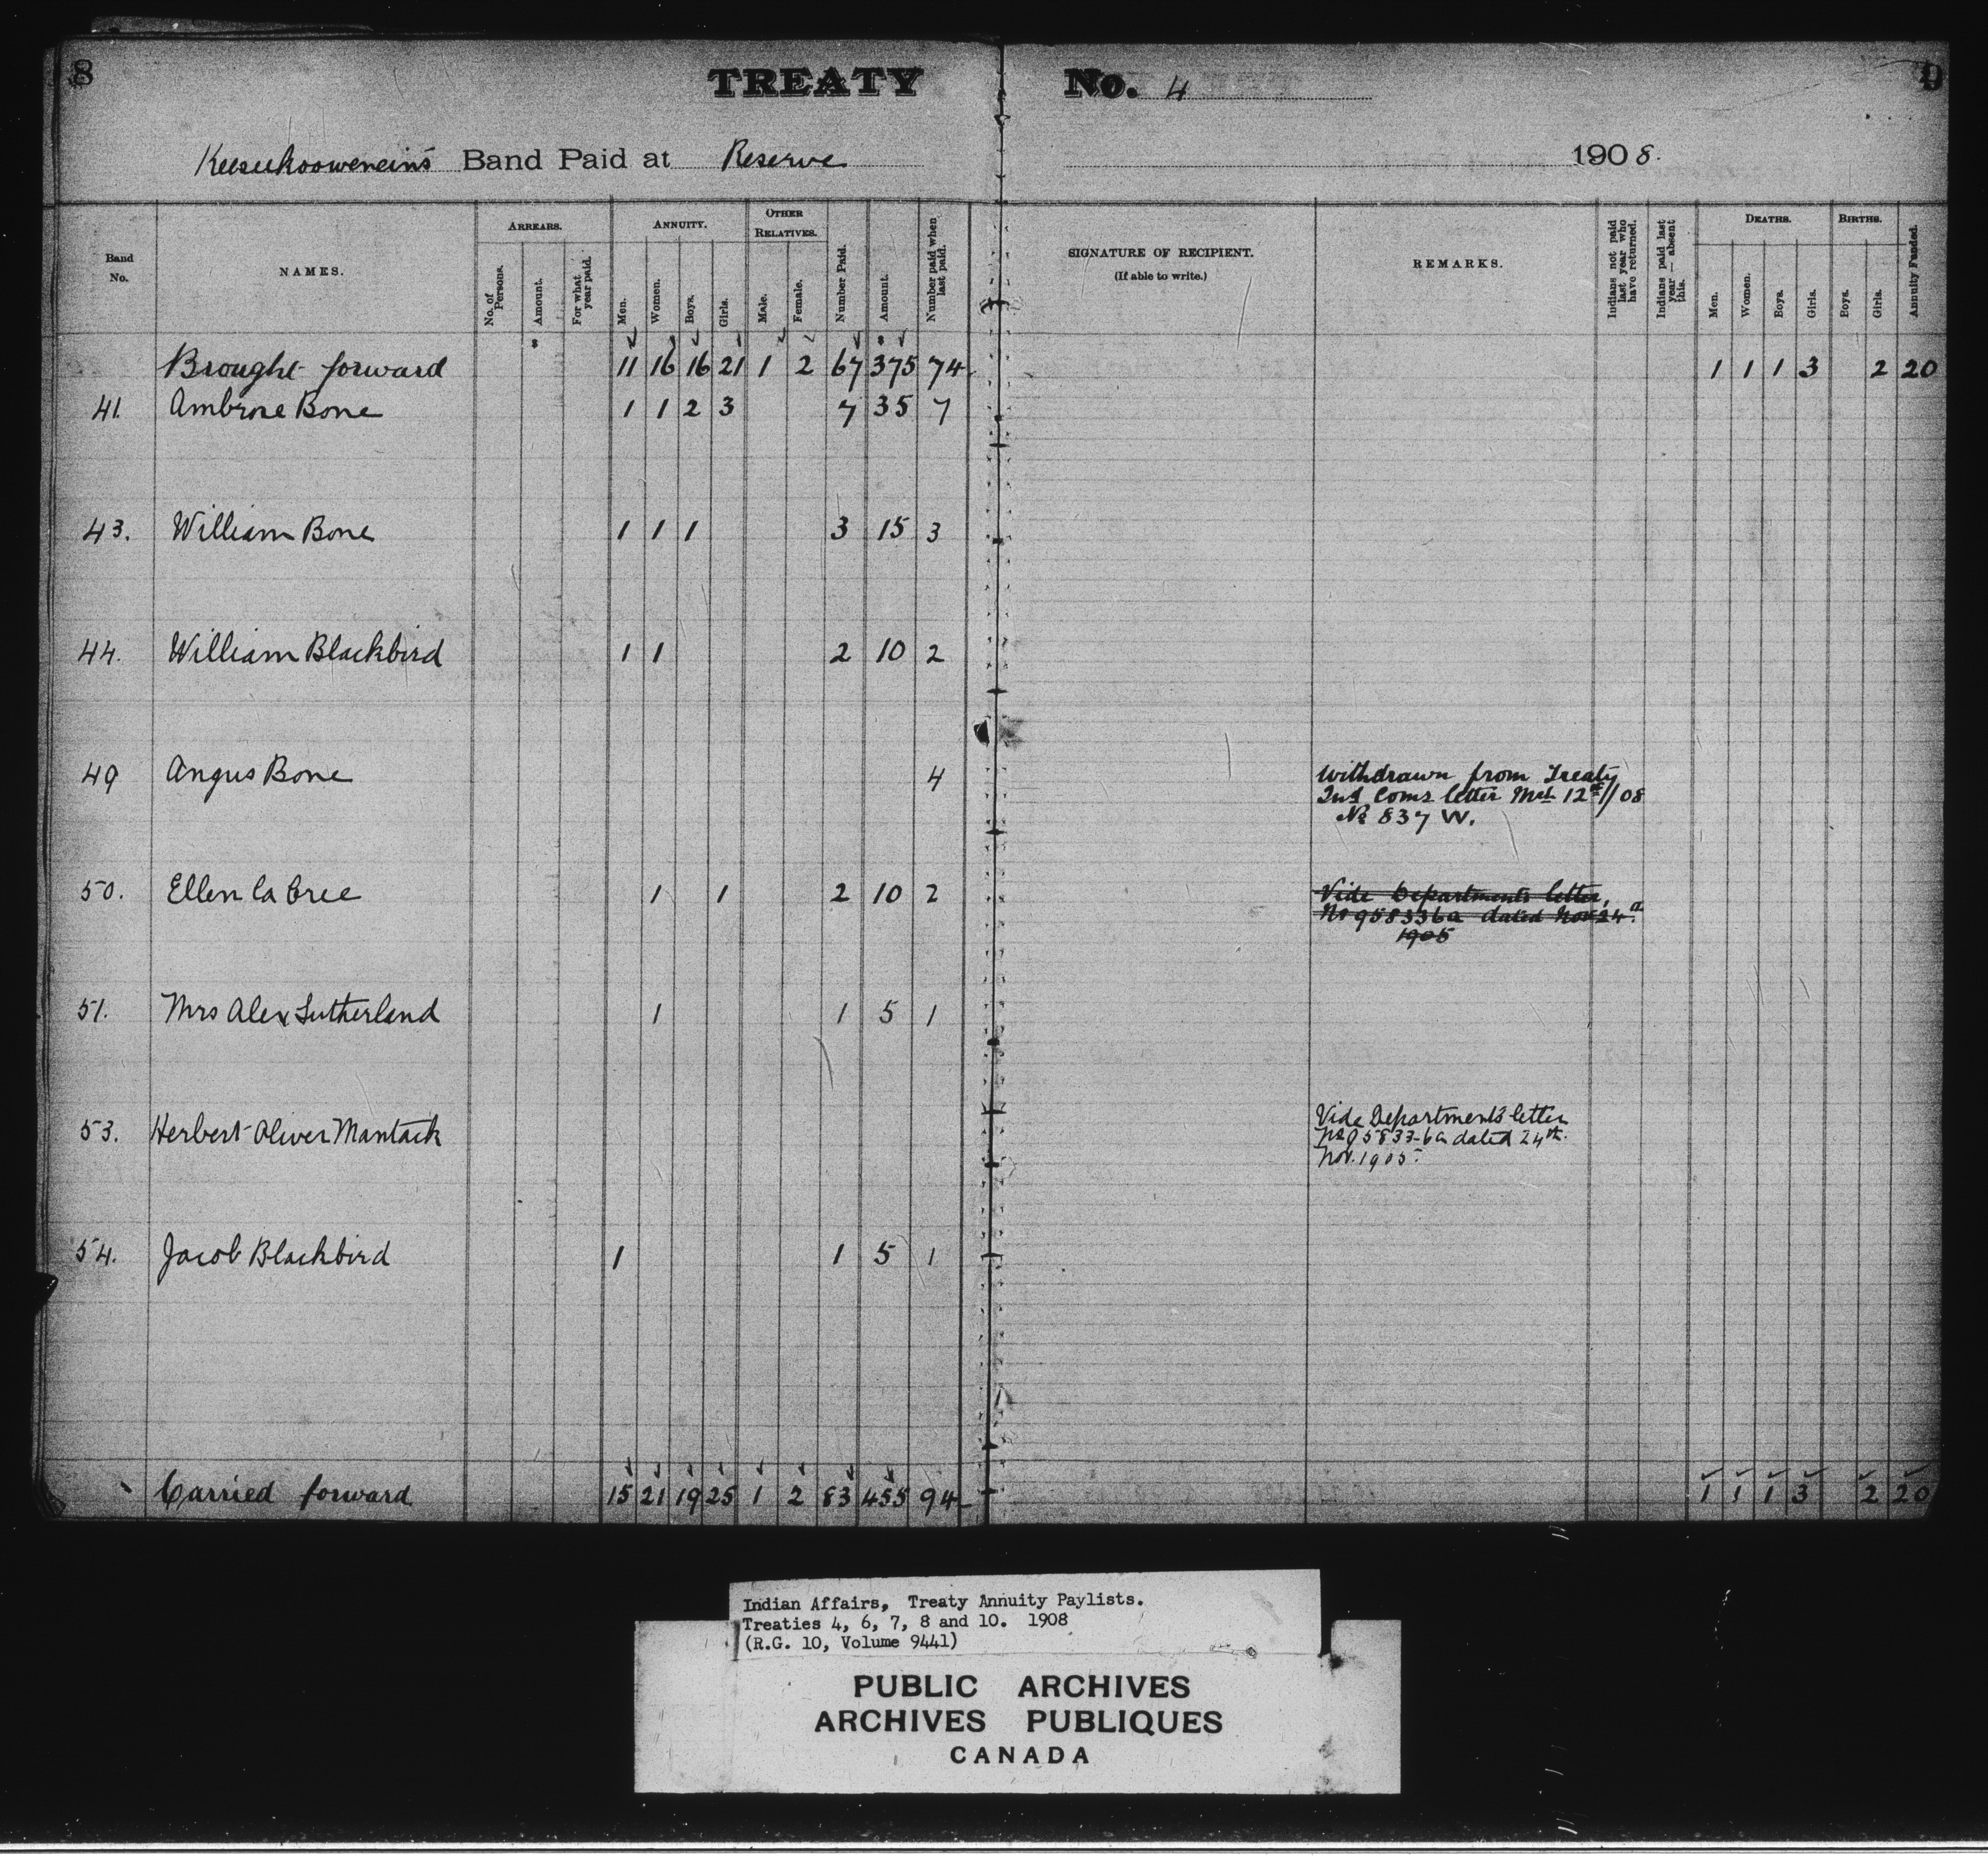 8
TREATY No. 4
9
Keeseekooweneins Band Paid at Reserve 1908.
Band No.
NAMES.
ARREARS.
No. of Persons.
Amount.
For what year paid.
ANNUITY.
Men.
Women.
Boys.
Girls.
OTHER RELATIVES.
Male.
Female.
Number Paid.
Amount.
Number paid when last paid.
SIGNATURE OF RECIPIENT.
(If able to write.)
REMARKS.
Indians not paid last year who have returned.
Indians paid last year — absent this.
DEATHS.
Men.
Women.
Boys.
Girls.
BIRTHS.
Boys.
Girls.
Annuity Funded.
Brought forward 11 16 16 21 1 2 67 375 74 1 1 1 3 2 20
41. Ambrose Bone 1 1 2 3 7 35 7
43. William Bone 1 1 1 3 15 3
44. William Blackbird 1 1 2 10 2
49 Angus Bone 4 Withdrawn from Treaty
Ind Coms letter Mch 12th/08
No 837 W.
50. Ellen La Cree 1 1 2 10 2 Vide Departments letter,
No 958336a dated Nov 24th
1905
51. Mrs Alex Sutherland 1 1 5 1
53. Herbert Oliver Mantack Vide Department's letter
No 95833-6a dated 24th
Nov. 1905.
54. Jacob Blackbird 1 1 5 1
Carried forward 15 21 19 25 1 2 83 455 94 1 1 1 3 2 20
Indian Affairs, Treaty Annuity Paylists.
Treaties 4, 6, 7, 8 and 10. 1908
(R.G. 10, Volume 9441)
PUBLIC ARCHIVES
ARCHIVES PUBLIQUES
CANADA